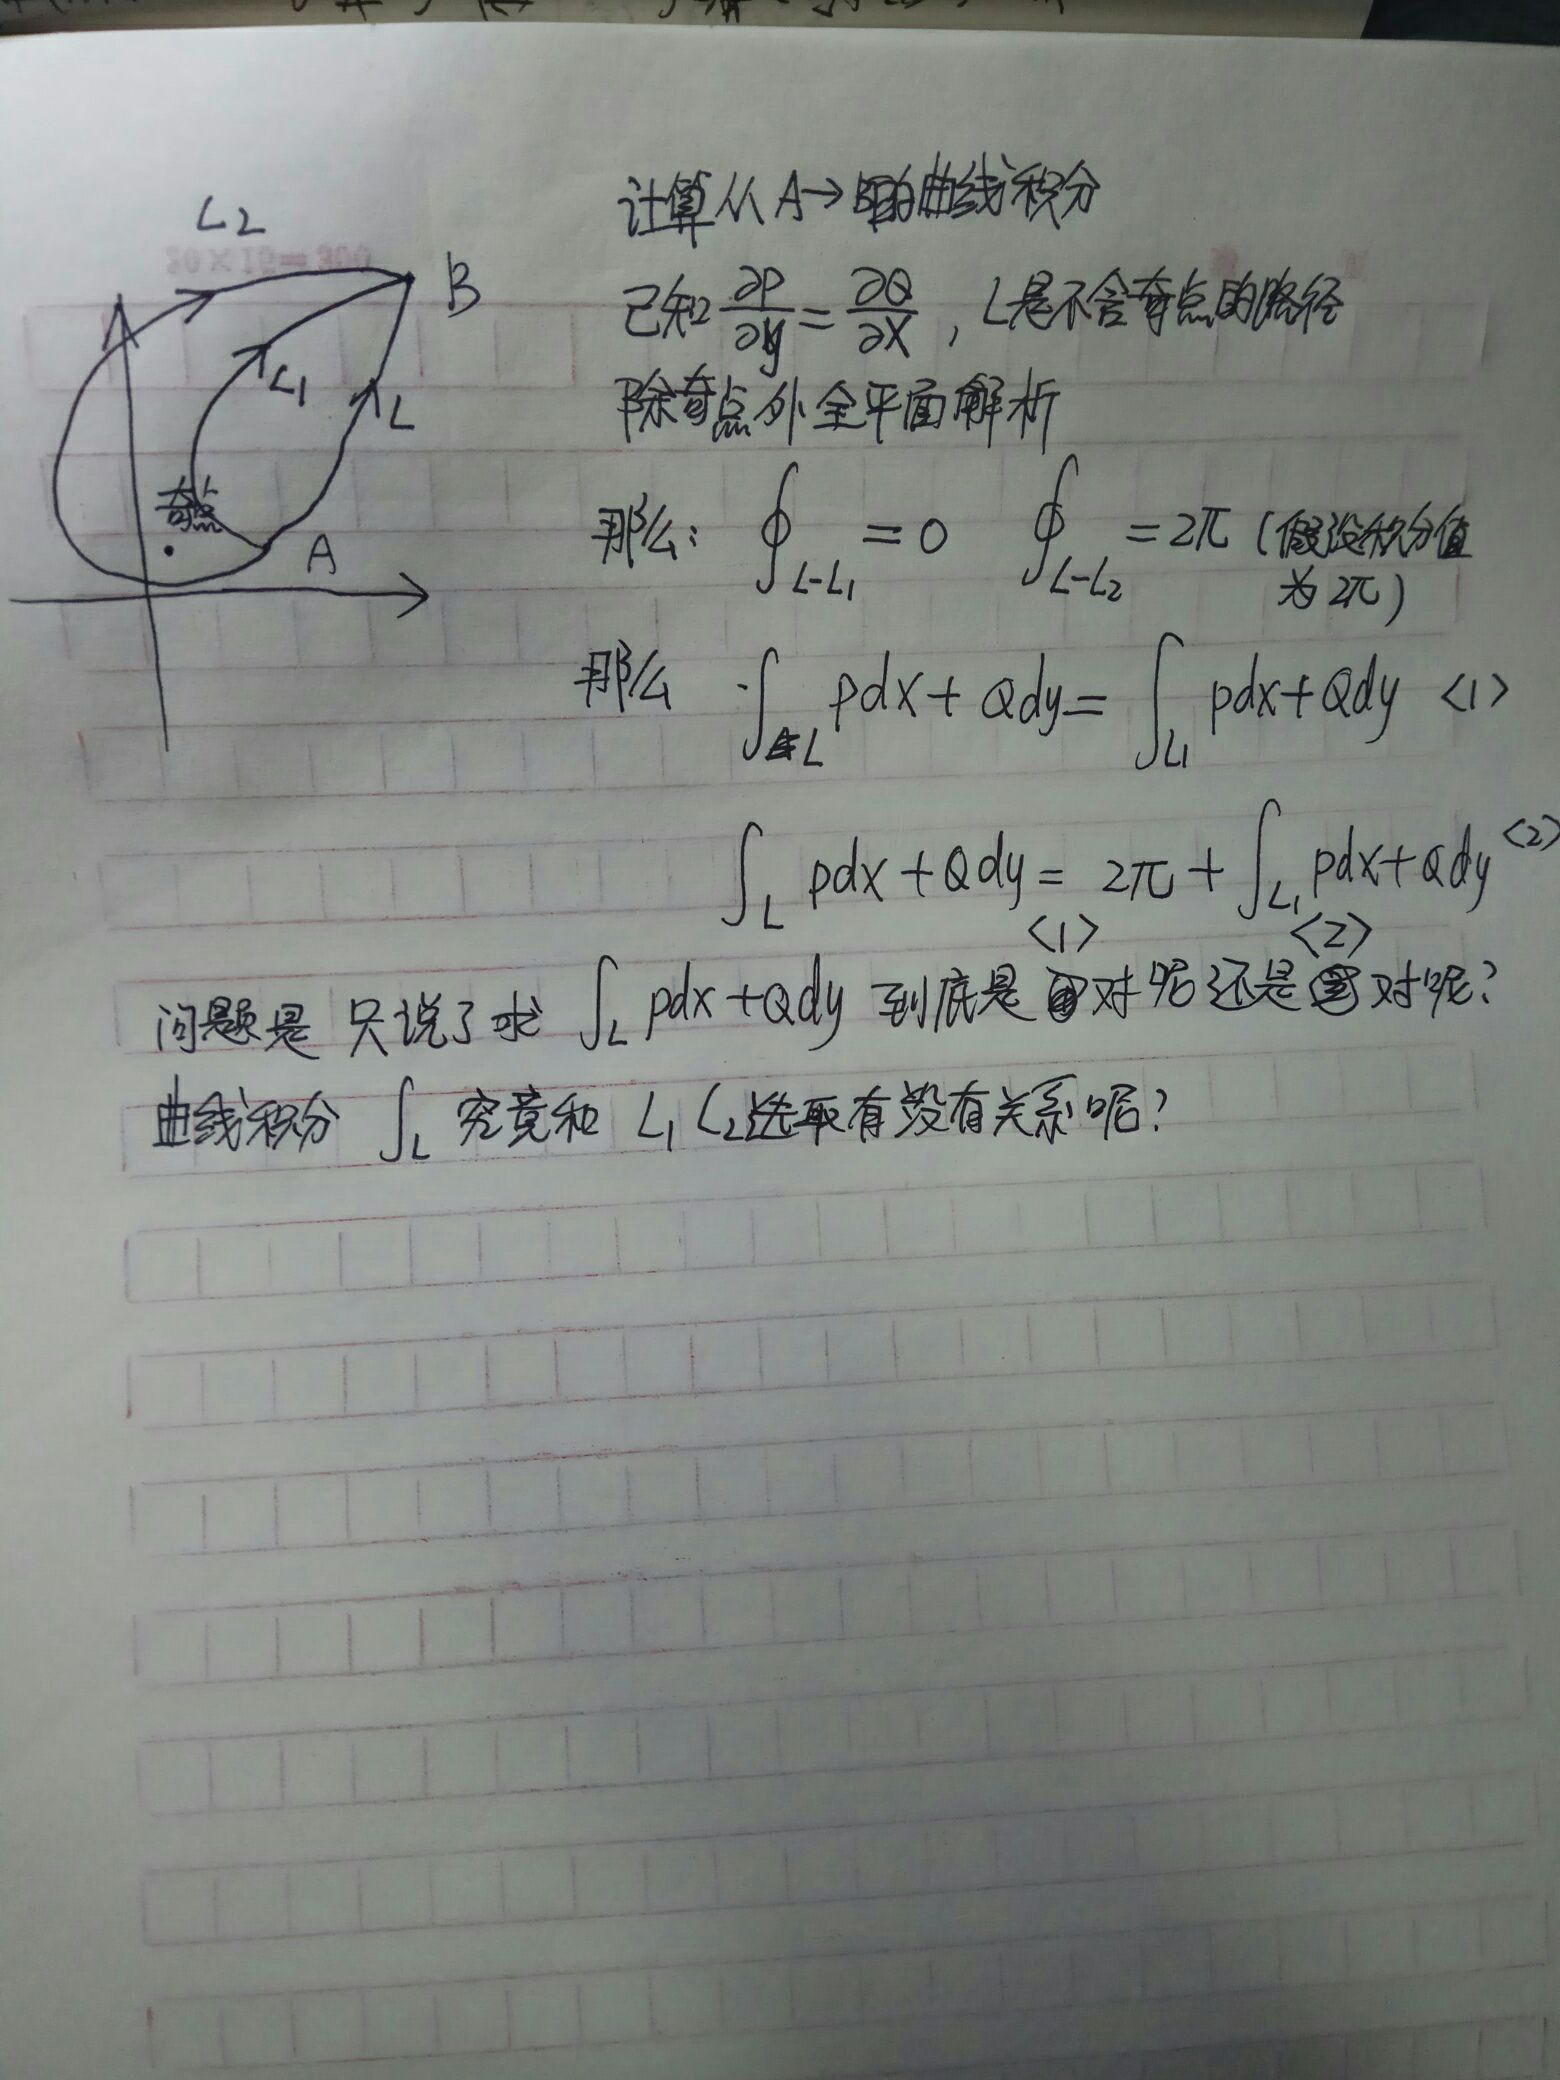 计算从A→B的曲线积分
已知 ∂P/∂y = ∂Q/∂X , L是不含奇点的路径
除奇点外全平面解析
那么: ∮L-L1 = 0 ∮L-L2 = 2π (假设积分值
为2π)
那么 ∫L Pdx + Qdy = ∫L1 pdx+Qdy <1>
∫L pdx + Qdy = 2π + ∫L1 pdx+Qdy <2>
<1> <2>
问题是 只说了求 ∫L pdx+Qdy 到底是 对呢还是 对呢?
曲线积分 ∫L 究竟和 L1 L2选取有没有关系呢?
L2
B
L1
L
奇点
A